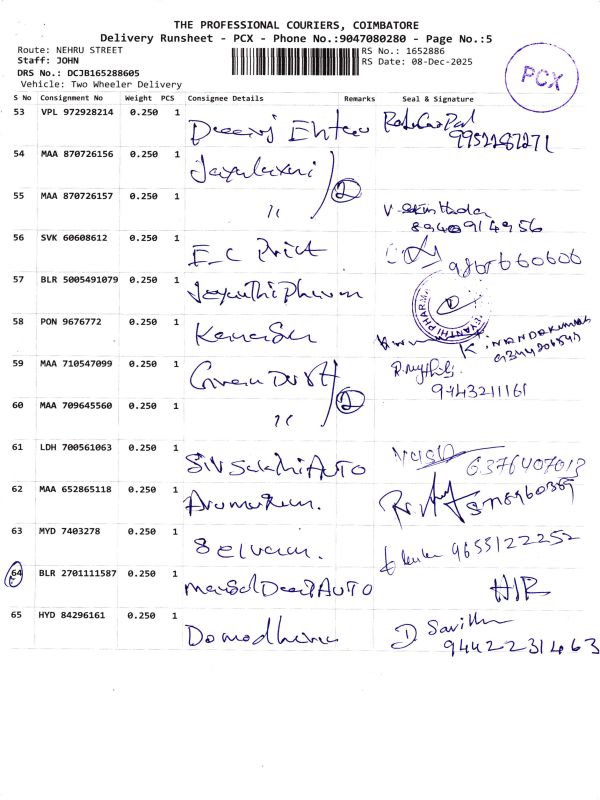 THE PROFESSIONAL COURIERS, COIMBATORE
Delivery Runsheet - PCX - Phone No.:9047080280 - Page No.:5
Route: NEHRU STREET
RS No.: 1652886
Staff: JOHN
RS Date: 08-Dec-2025
DRS No.: DCJB165288605
Vehicle: Two Wheeler Delivery
PCX
S No Consignment No Weight PCS Consignee Details Remarks Seal & Signature
53 VPL 972928214 0.250 1
9952287271
54 MAA 870726156 0.250 1 Jayalaxmi
2
55 MAA 870726157 0.250 1 "
8940914956
56 SVK 60608612 0.250 1 E-C Print
57 BLR 5005491079 0.250 1 Jayanthi Pharma
58 PON 9676772 0.250 1
K. NANDAKUMAR
59 MAA 710547099 0.250 1
9443211161
2
60 MAA 709645560 0.250 1 "
61 LDH 700561063 0.250 1 Siv Sakthi AUTO
6376407013
62 MAA 652865118 0.250 1
63 MYD 7403278 0.250 1 Selvam.
9655122252
64 BLR 2701111587 0.250 1 AUTO
65 HYD 84296161 0.250 1
D Savitha
9442231463